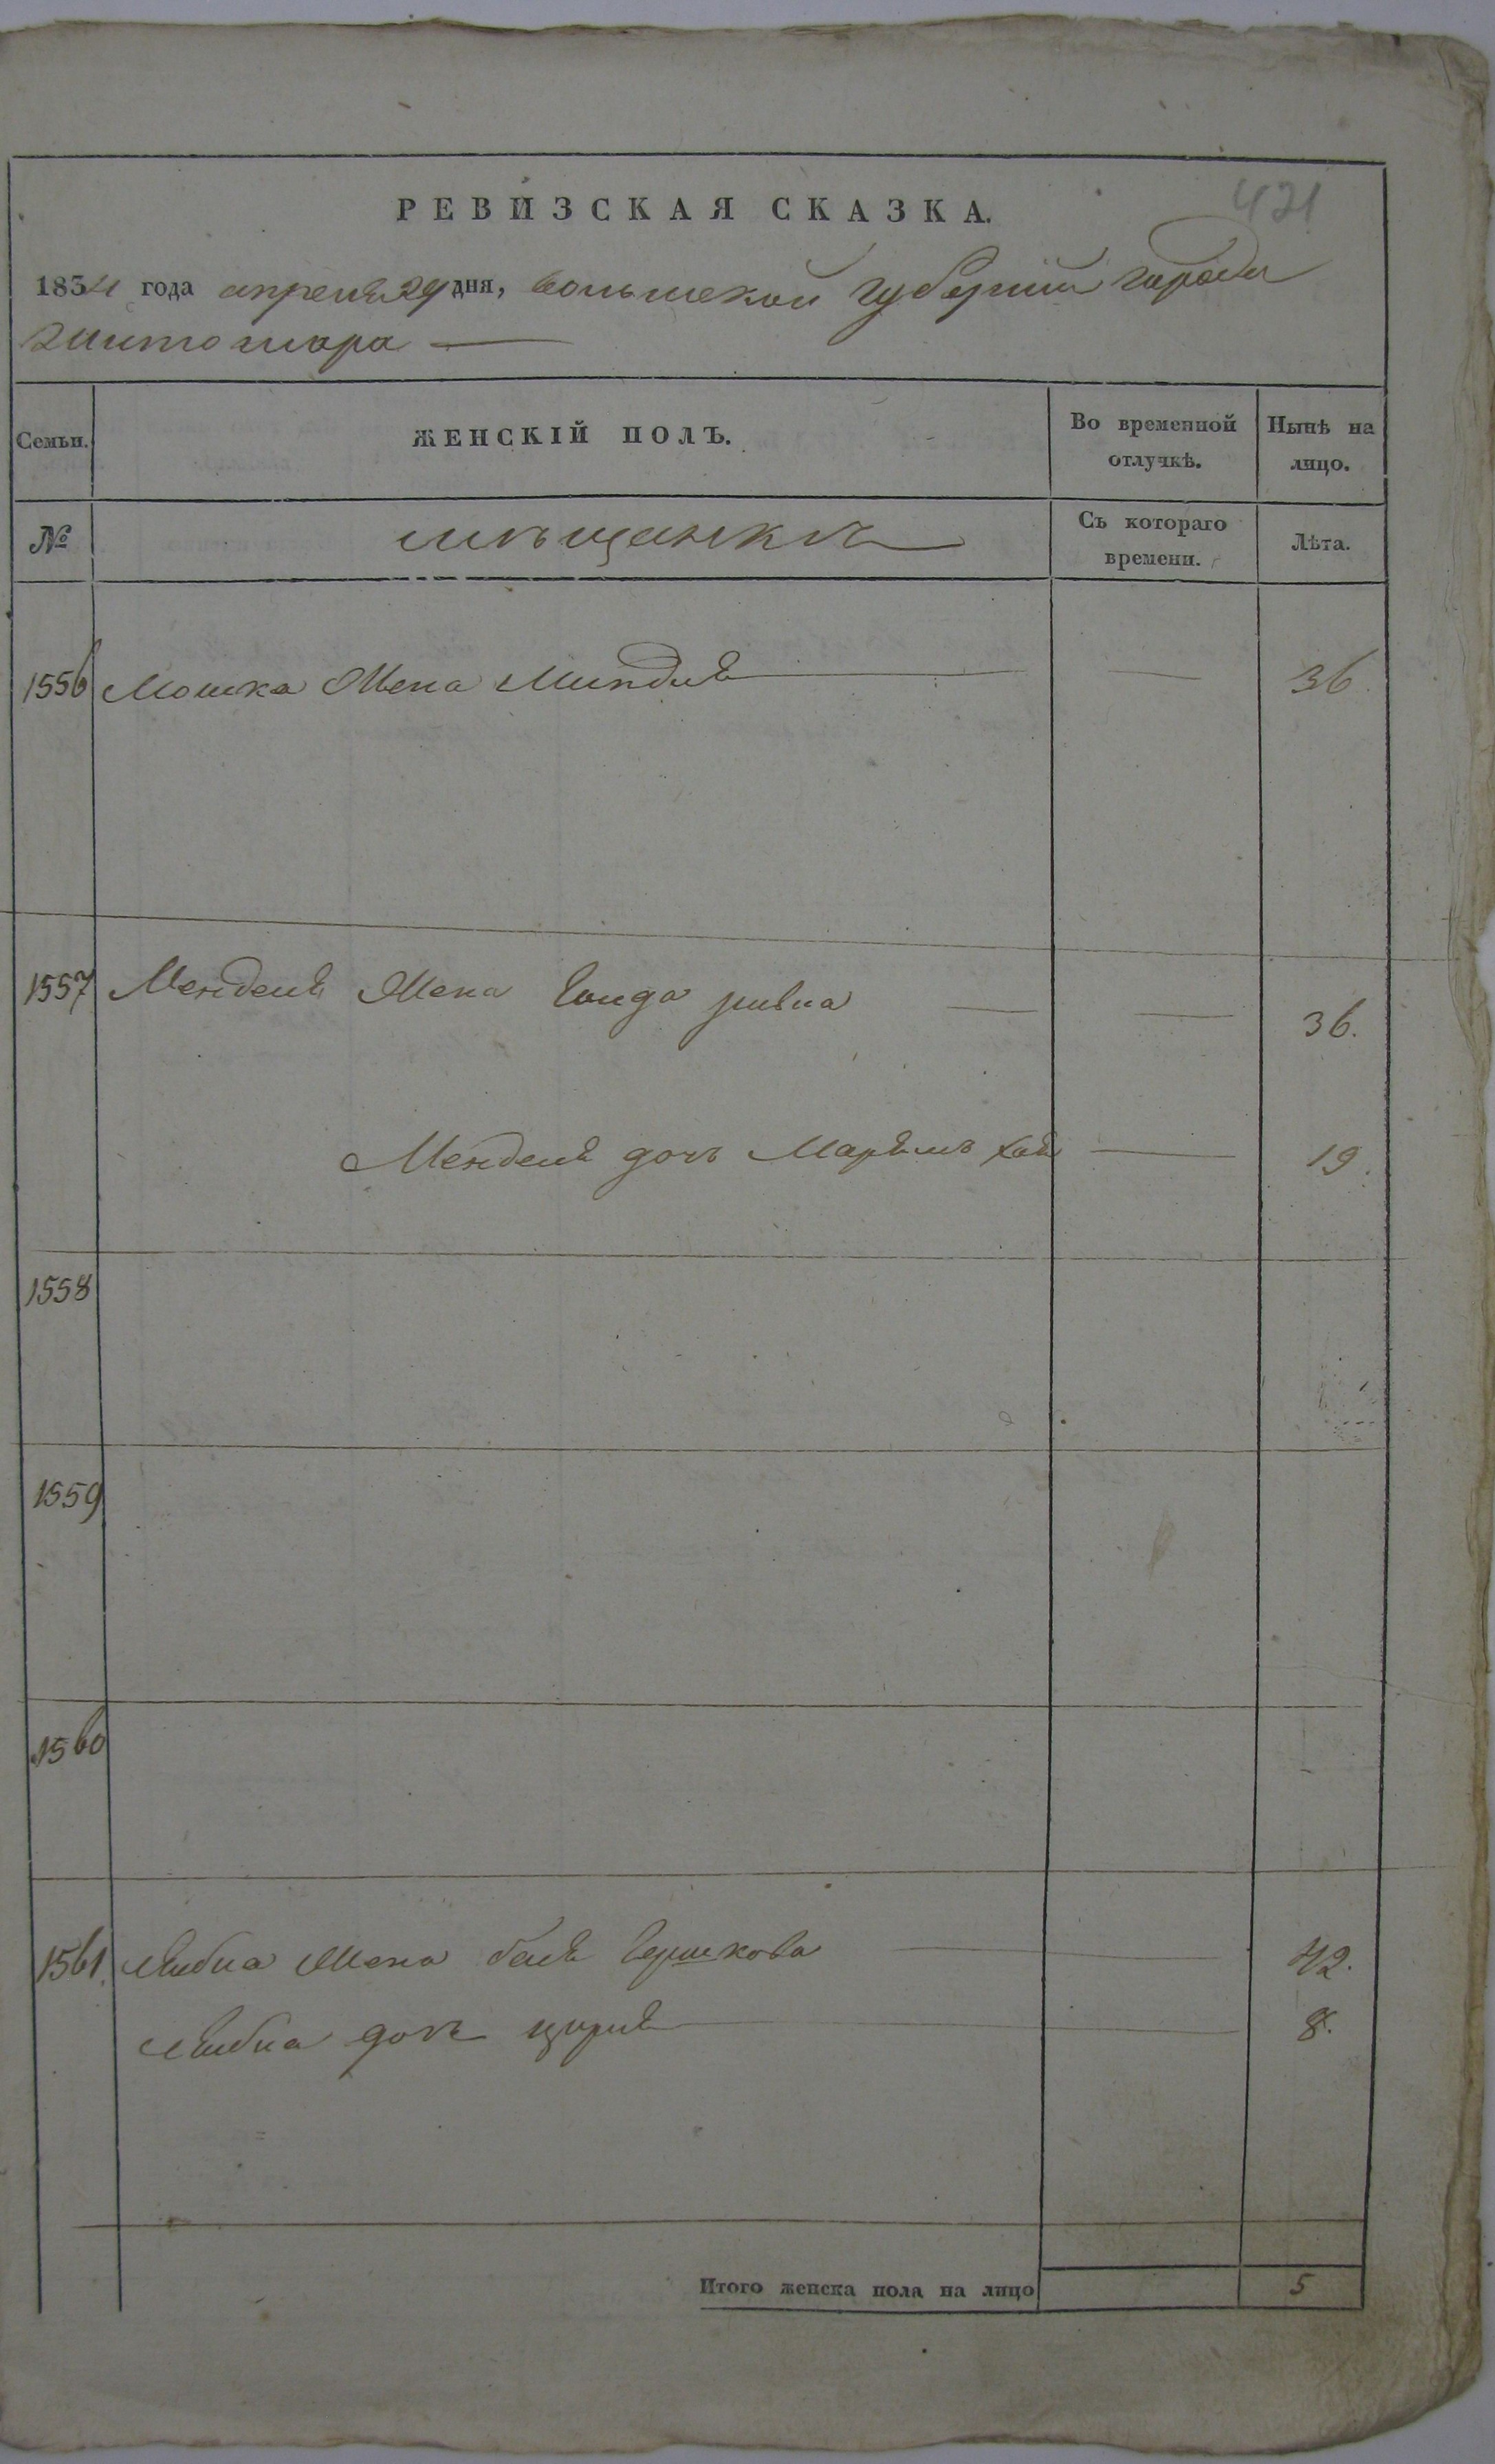 421
РЕВИЗСКАЯ СКАЗКА.
1834 года апреля 29 дня, волынской губернии города
житомира
Семьи.
ЖЕНСКІЙ ПОЛЪ.
Во временной отлучкѣ.
Нынѣ на лицо.
№
мѣщанкѣ
Съ котораго времени.
Лѣта.
1556 Мошка Жена Миндля 36.
1557 Менделя Жена ривка 36.
Менделя дочь Марьямъ хая 19.
1558
1559
1560
1561. Лейбиа Жена бейля Гершкова 42.
Лейбиа дочь цирля 8.
Итого женска пола на лицо 5